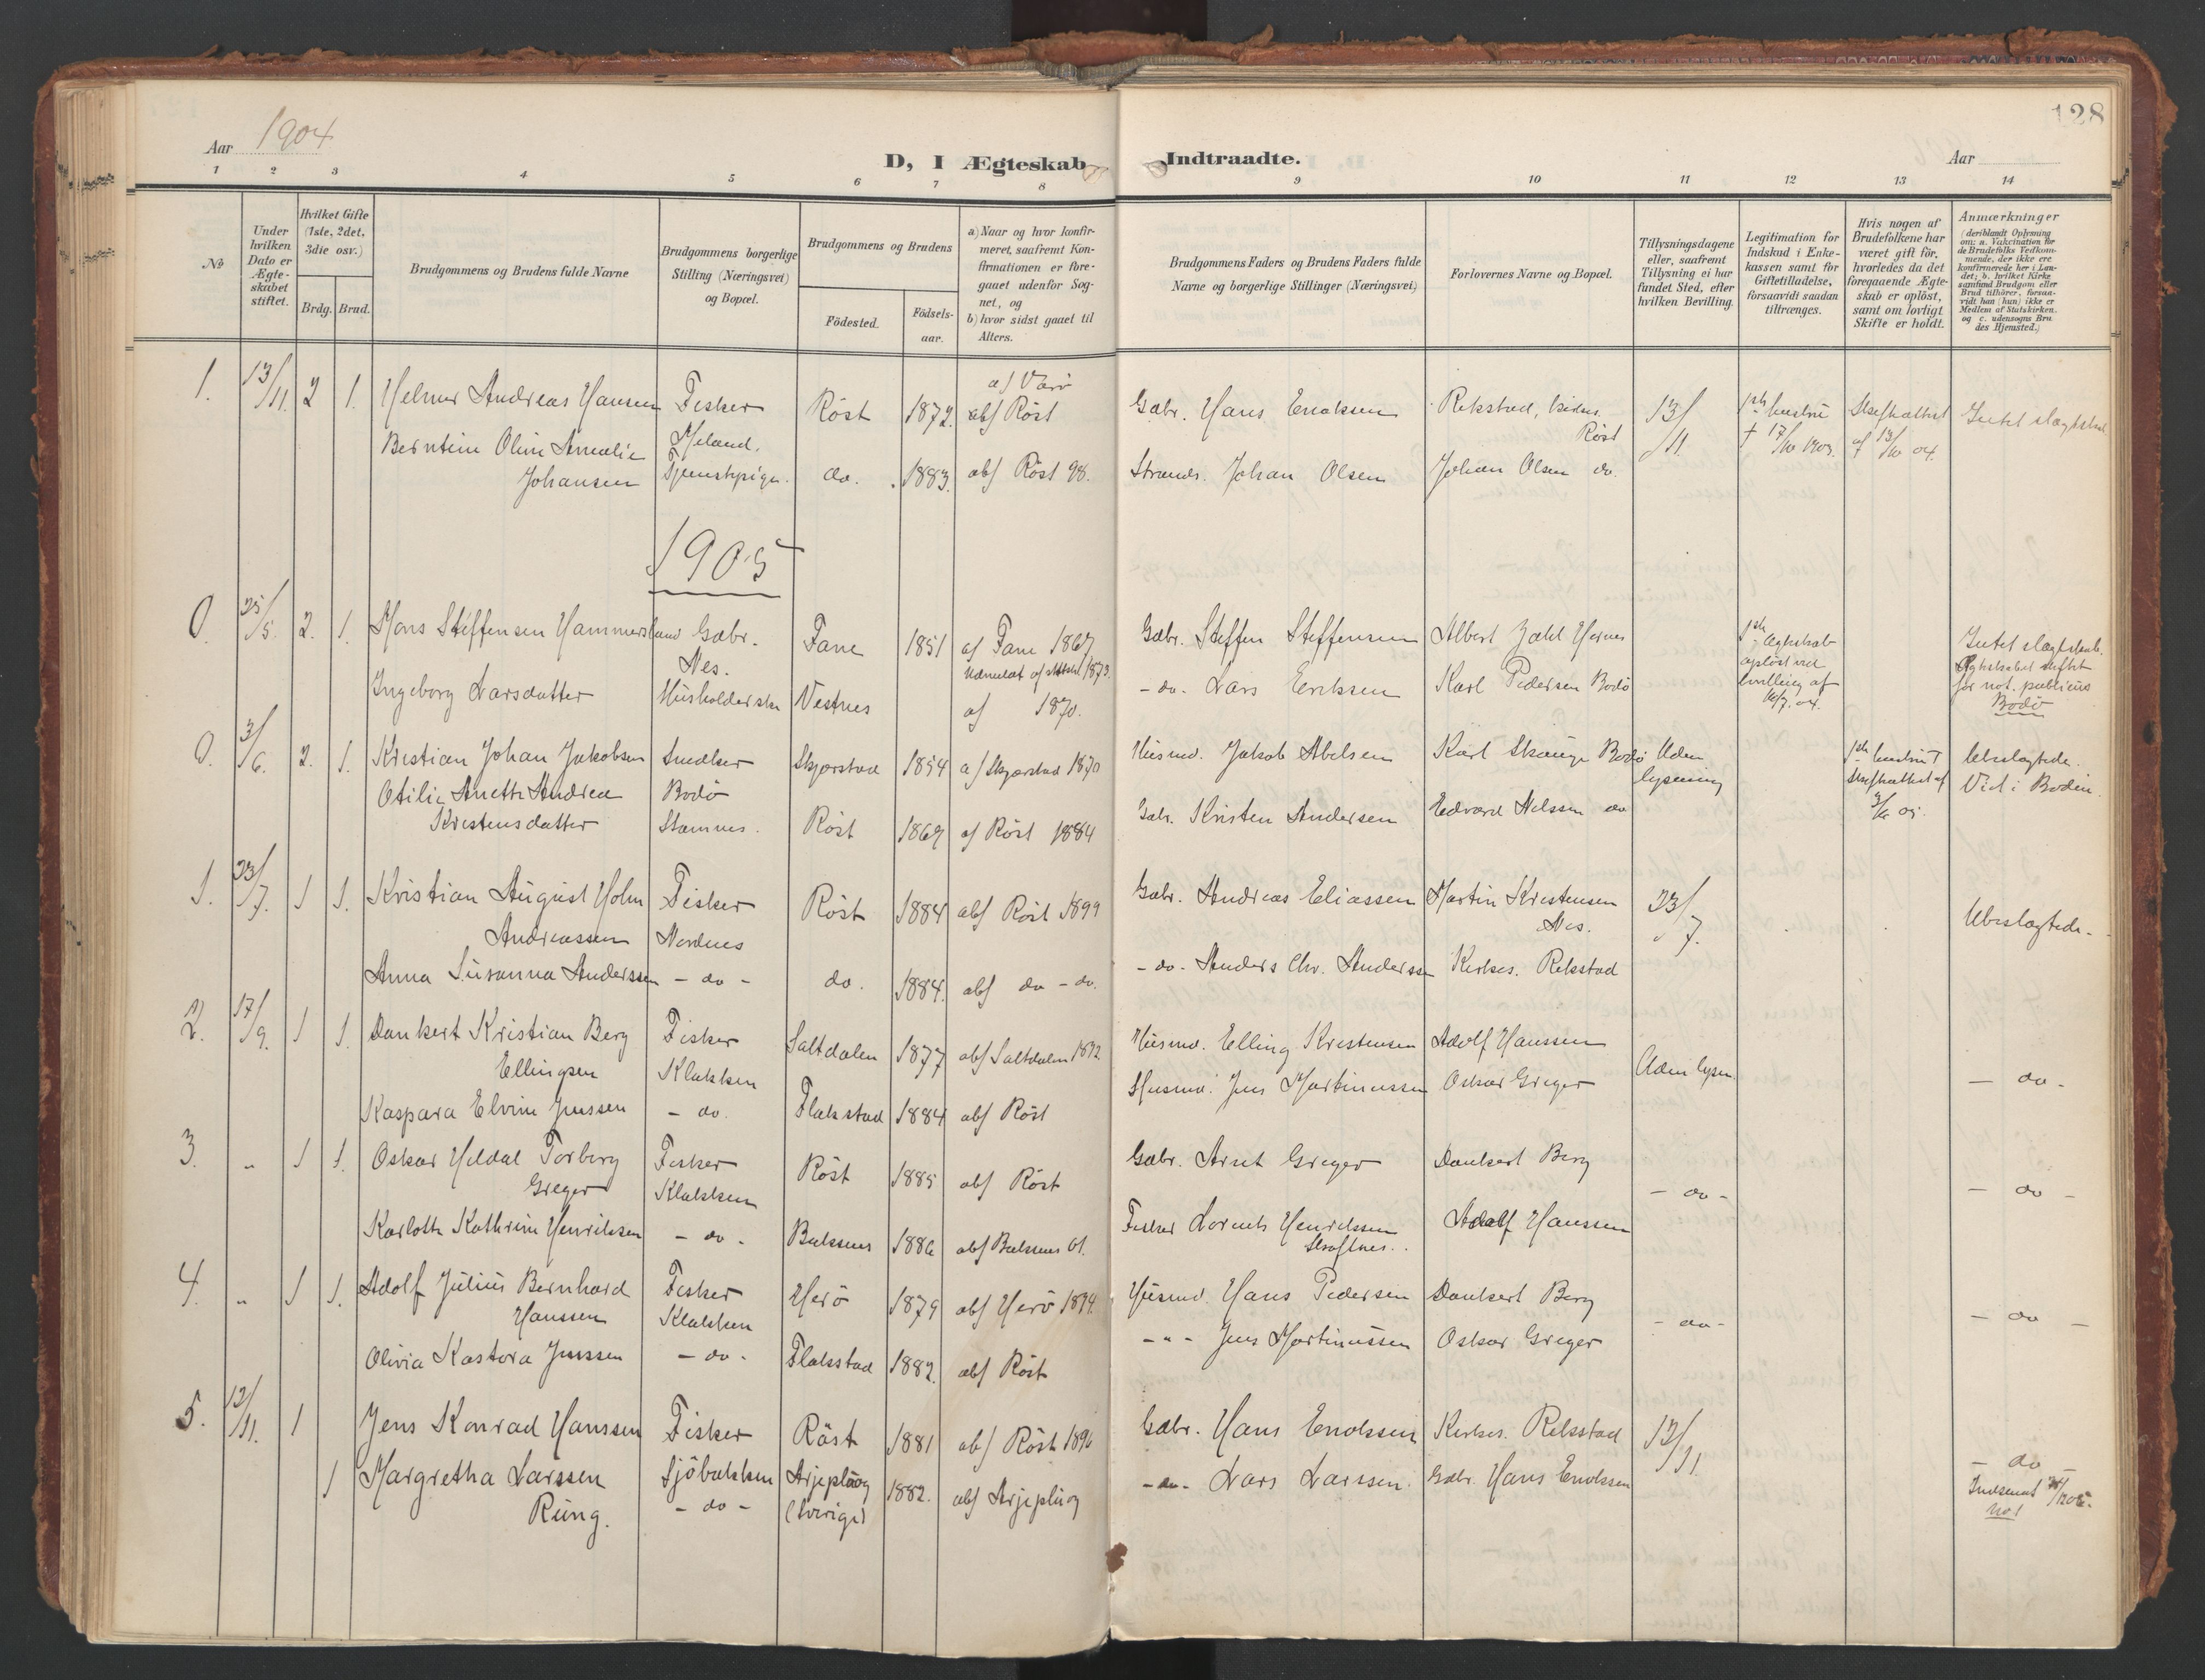 128
Aar 1904
D, I Ægteskab Indtraadte.
Aar
1 2 3 4 5 6 7 8 9 10 11 12 13 14
No
Under hvilken Dato er Ægteskabet stiftet.
Hvilket Gifte (1ste, 2det, 3die osv.)
Brdg. Brud.
Brudgommens og Brudens fulde Navne
Brudgommens borgerlige Stilling (Næringsvei) og Bopæl.
Brudgommens og Brudens
Födested.
Födselsaar.
a) Naar og hvor konfirmeret, saafremt Konfirmationen er foregaaet udenfor Sognet, og
b) hvor sidst gaaet til Alters.
Brudgommens Faders og Brudens Faders fulde Navne og borgerlige Stillinger (Næringsvei)
Forlovernes Navne og Bopæl.
Tillysningsdagene eller, saafremt Tillysning ei har fundet Sted, efter hvilken Bevilling.
Legitimation for Indskud i Enkekassen samt for Giftetilladelse, forsaavidt saadan tiltrænges.
Hvis nogen af Brudefolkene har været gift för, hvorledes da det foregaaende Ægteskab er oplöst, samt om lovligt Skifte er holdt.
Anmærkninger
(deriblandt Oplysning om: a. Vakcination for de Brudefolks Vedkommende, der ikke ere konfirmerede her i Landet; b. hvilket Kirkesamfund Brudgom eller Brud tilhörer, forsaavidt han (hun) ikke er Medlem af Statskirken, og c. udensogns Brudes Hjemsted.)
1. 13/11. 2 1. Helmer Andreas Hansen Fisker Röst 1872. a) Værö
abf Röst Gbr. Hans Enoksen Rekstad, kirkes. Röst 13/11 1ste hustru † 17/10 1903. Skifteattest af 13/10 04. Intet slægtskab
Meland.
Berntine Oline Amalie Johansen Tjenestepige. do. 1883. abf Röst 98. Strands. Johan Olsen Johan Olsen do.
1905
0. 25/5. 2. 1. Mons Steffensen Hammersland Gbr. Nes. Fane 1851 af Fane 1867 Gbr. Steffen Steffensen Albert Zahl Hernes 1ste Ægteskab oplöst ved bevilling af 16/7. 04. Intet slægtskab. Ægteskabet stiftet for not. publicus Bodö
Udmeldt af 1873.
Ingeborg Larsdatter Husholderske Vestnes af 1870. - do. Lars Eriksen Karl Pedersen Bodö
0. 3/6. 2. 1. Kristian Johan Jakobsen Snedker Bodö Skjerstad 1854 af Skjerstad 1870 Husmd. Jakob Abelsen Karl Skauge Bodö Uden lysning 1ste hustru † Skifteattest af 3/6 05. Ubeslægtede. Viet i Bodin.
Otilie Anette Andrea Kristensdatter Stamnes. Röst 1869 af Röst 1884 Gbr. Kristen Andersen Edvard Nilssen do
1. 23/7. 1 1. Kristian August Holm Andreassen Fisker Nordnes Röst 1884 abf Röst 1899 Gbr. Andreas Eliassen Martin Kristensen Nes. 23/7. Ubeslægtede.
Anna Susanna Anderssen - do - do. 1884. abf do - do. - do. Anders Chr. Anderssen Kirkes. Rekstad
2. 17/9. 1 1. Dankert Kristian Berg Ellingsen Fisker Klakken Saltdalen 1877 abf Saltdalen 1892 Husmd. Elling Kristensen Adolf Hanssen Uden lysn. - do -
Kaspara Elvine Jenssen - do. Flakstad 1884 abf Röst Husmd. Jens Martinussen Oskar Greger
3. „ 1 1. Oskar Heldal Torberg Greger Fisker Klakken Röst 1885 abf Röst Gbr. Arnt Greger Dankert Berg - do - - do -
Karlotte Kathrine Henriksen - do - Buksnes 1886 abf Buksnes 01. Fisker Lorents Henriksen Adolf Hanssen
4. „ 1 1. Adolf Julius Bernhard Hanssen Fisker Klakken Herö 1879 abf Herö 1894. Husmd. Hans Pedersen Dankert Berg - do - - do -
Olivia Kastora Jenssen - do - Flakstad 1882. abf Röst - „ - Jens Martinussen Oskar Greger
5. 12/11. 1 Jens Konrad Hanssen Fisker Röst 1881 abf Röst 1896 Gbr. Hans Enoksen Kirkes. Rekstad 12/11. - do -
1 Margretha Larssen Ring. Sjöbakken - do - Arjepluog (Sverige) 1882. abf Arjepluog - do - Lars Larssen. Gbr. Hans Enoksen
No 1